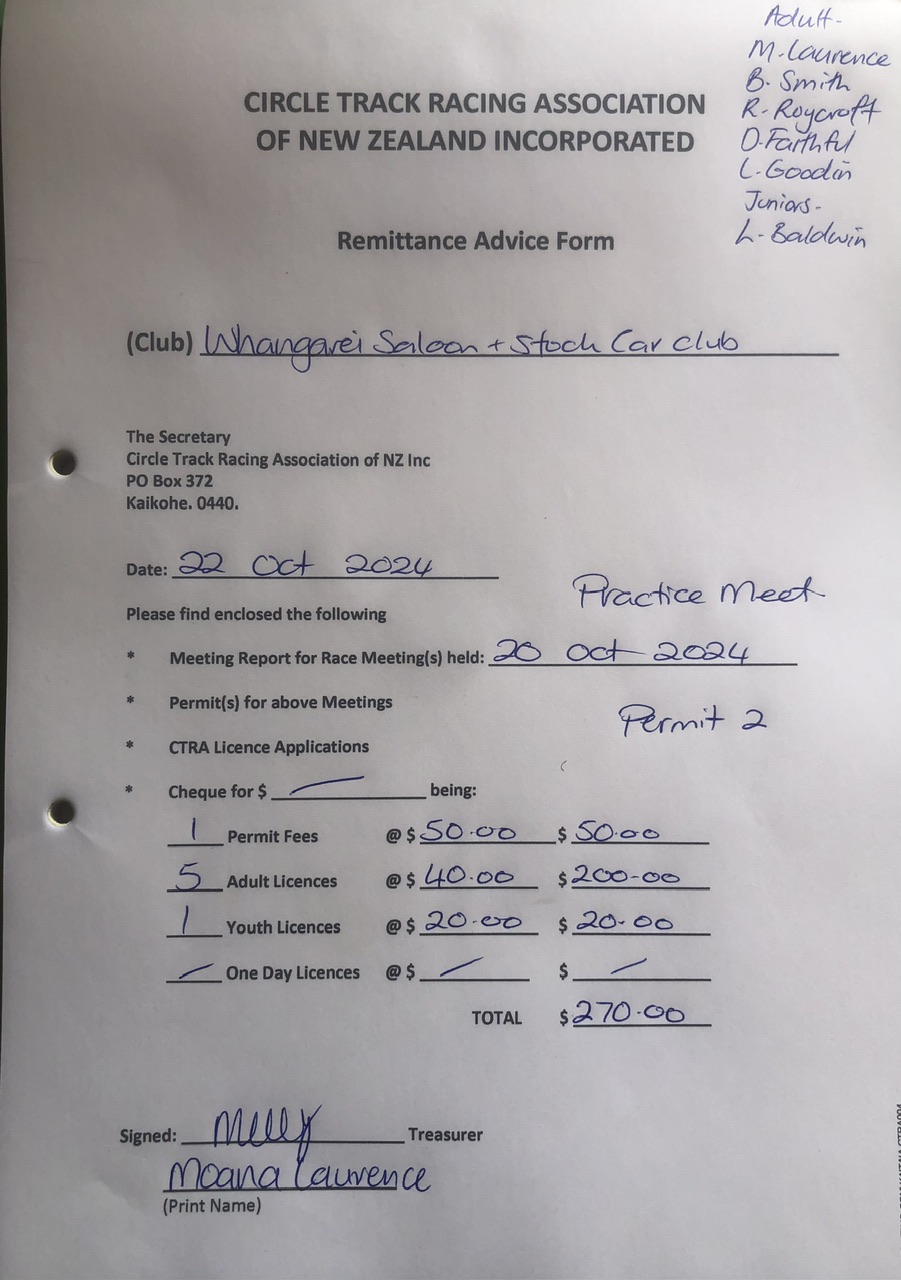 Adult-
M. Laurence
B. Smith
R. Roycroft
D. Faithful
L. Goodin
Juniors-
L. Baldwin
CIRCLE TRACK RACING ASSOCIATION
OF NEW ZEALAND INCORPORATED
Remittance Advice Form
(Club) Whangarei Saloon + Stock Car club
The Secretary
Circle Track Racing Association of NZ Inc
PO Box 372
Kaikohe. 0440.
Date: 22 Oct 2024
Practice Meet
Please find enclosed the following
* Meeting Report for Race Meeting(s) held: 20 Oct 2024
* Permit(s) for above Meetings
Permit 2
* CTRA Licence Applications
* Cheque for $ — being:
1 Permit Fees @ $ 50.00 $ 50.00
5 Adult Licences @ $ 40.00 $ 200-00
1 Youth Licences @ $ 20.00 $ 20.00
— One Day Licences @ $ — $ —
TOTAL $ 270.00
Signed: Treasurer
Moana Laurence
(Print Name)